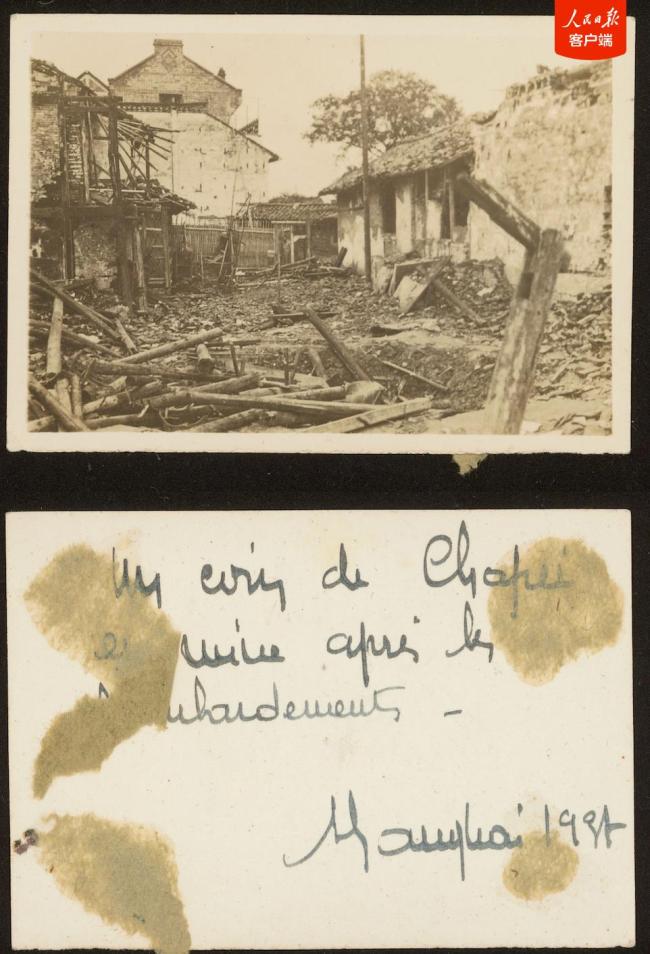 人民日报
客户端
Un coin de Chapei
en ruine après les
bombardements -
Shanghai 1937